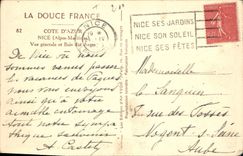 LA DOUCE FRANCE
82 COTE D'AZUR
NICE (Alpes-Maritimes)
Vue générale et Baie des Anges
NICE
NICE SES JARDINS
NICE SON SOLEIL
NICE SES FÊTES
De Nice où nous
sommes venus passer
les vacances de Pâques
nous vous envoyons
ainsi qu'à votre
Mademoiselle
Le Sanquin
rue des Fossés
Nogent s/ Seine
Aube